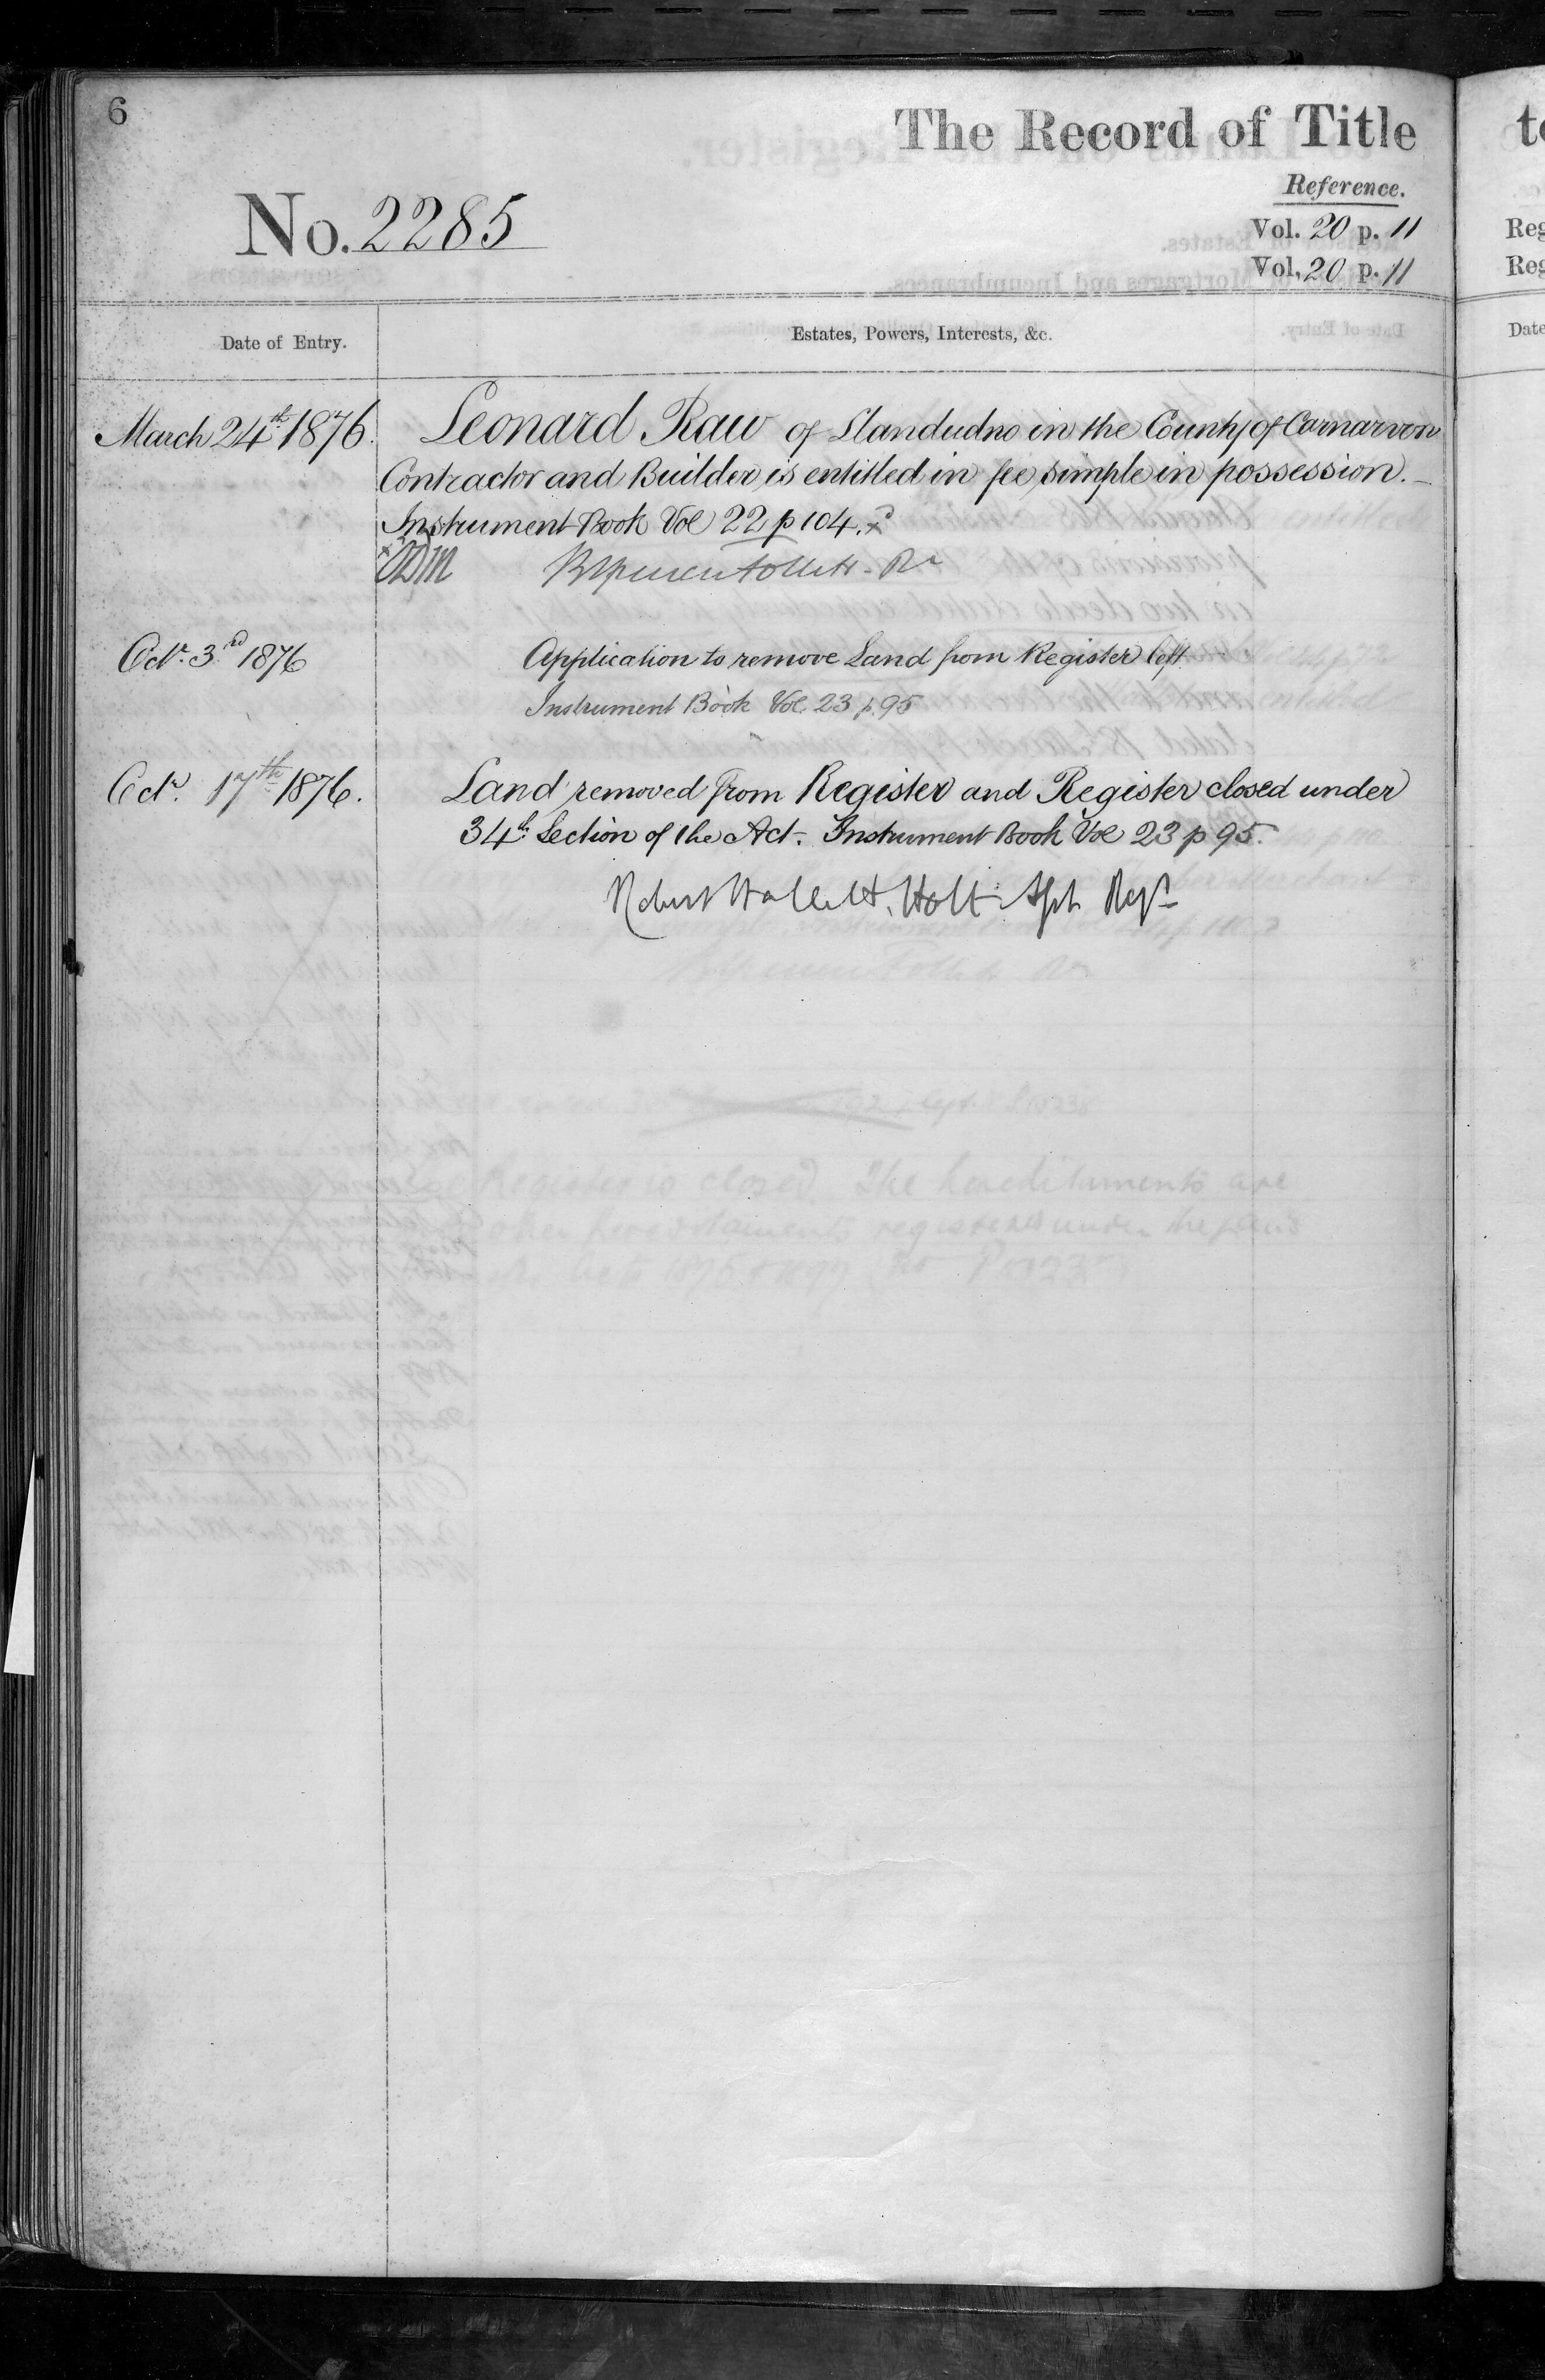 6
The Record of Title
Reference.
No. 2285
Vol. 20 p. 11
Vol. 20 p. 11
Date of Entry.
Estates, Powers, Interests, &c.
March 24th 1876.
Leonard Raw of Llandudno in the County of Carnarvon
Contractor and Builder, is entitled in fee simple in possession. —
Instrument Book Vol 22 p 104.
Octr. 3rd 1876
Application to remove Land from Register left.
Instrument Book Vol. 23 p. 95
Octr. 17th 1876.
Land removed from Register and Register closed under
34th Section of the Act. Instrument Book Vol 23 p 95.
Robert Hallett Holt Asst Regr
to
Reg
Reg
Date